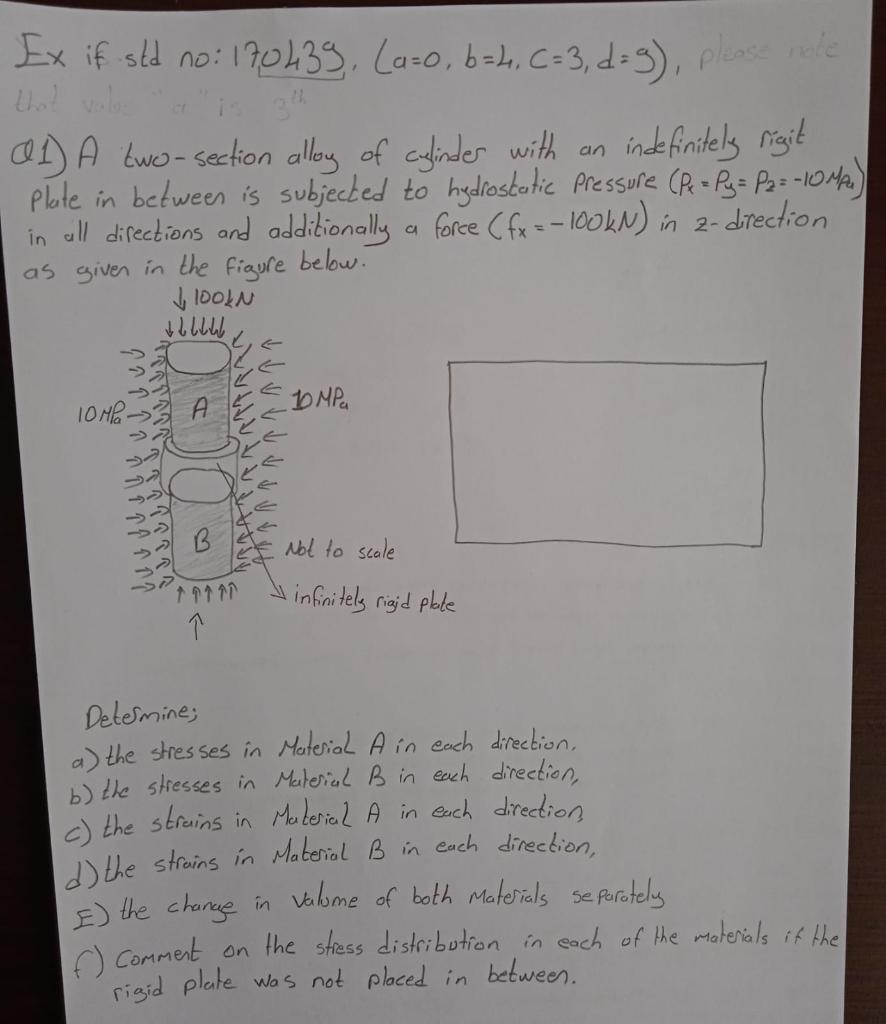 Ex if std no: 170439, (a=0, b=4, c=3, d=9), please note
that value "a" is 3th
Q1) A two-section alloy of cylinder with an indefinitely rigit
plate in between is subjected to hydrostatic pressure (Px = Py = Pz = -10 MPa)
in all directions and additionally a force (fx = -100kN) in z-direction
as given in the figure below.
100kN
A
10 MPa
10 MPa
B
Not to scale
infinitely rigid plate
Determine;
a) the stresses in Material A in each direction,
b) the stresses in Material B in each direction,
c) the strains in Material A in each direction,
d) the strains in Material B in each direction,
E) the change in Valume of both Materials separately
f) Comment on the stress distribution in each of the materials if the
rigid plate was not placed in between.